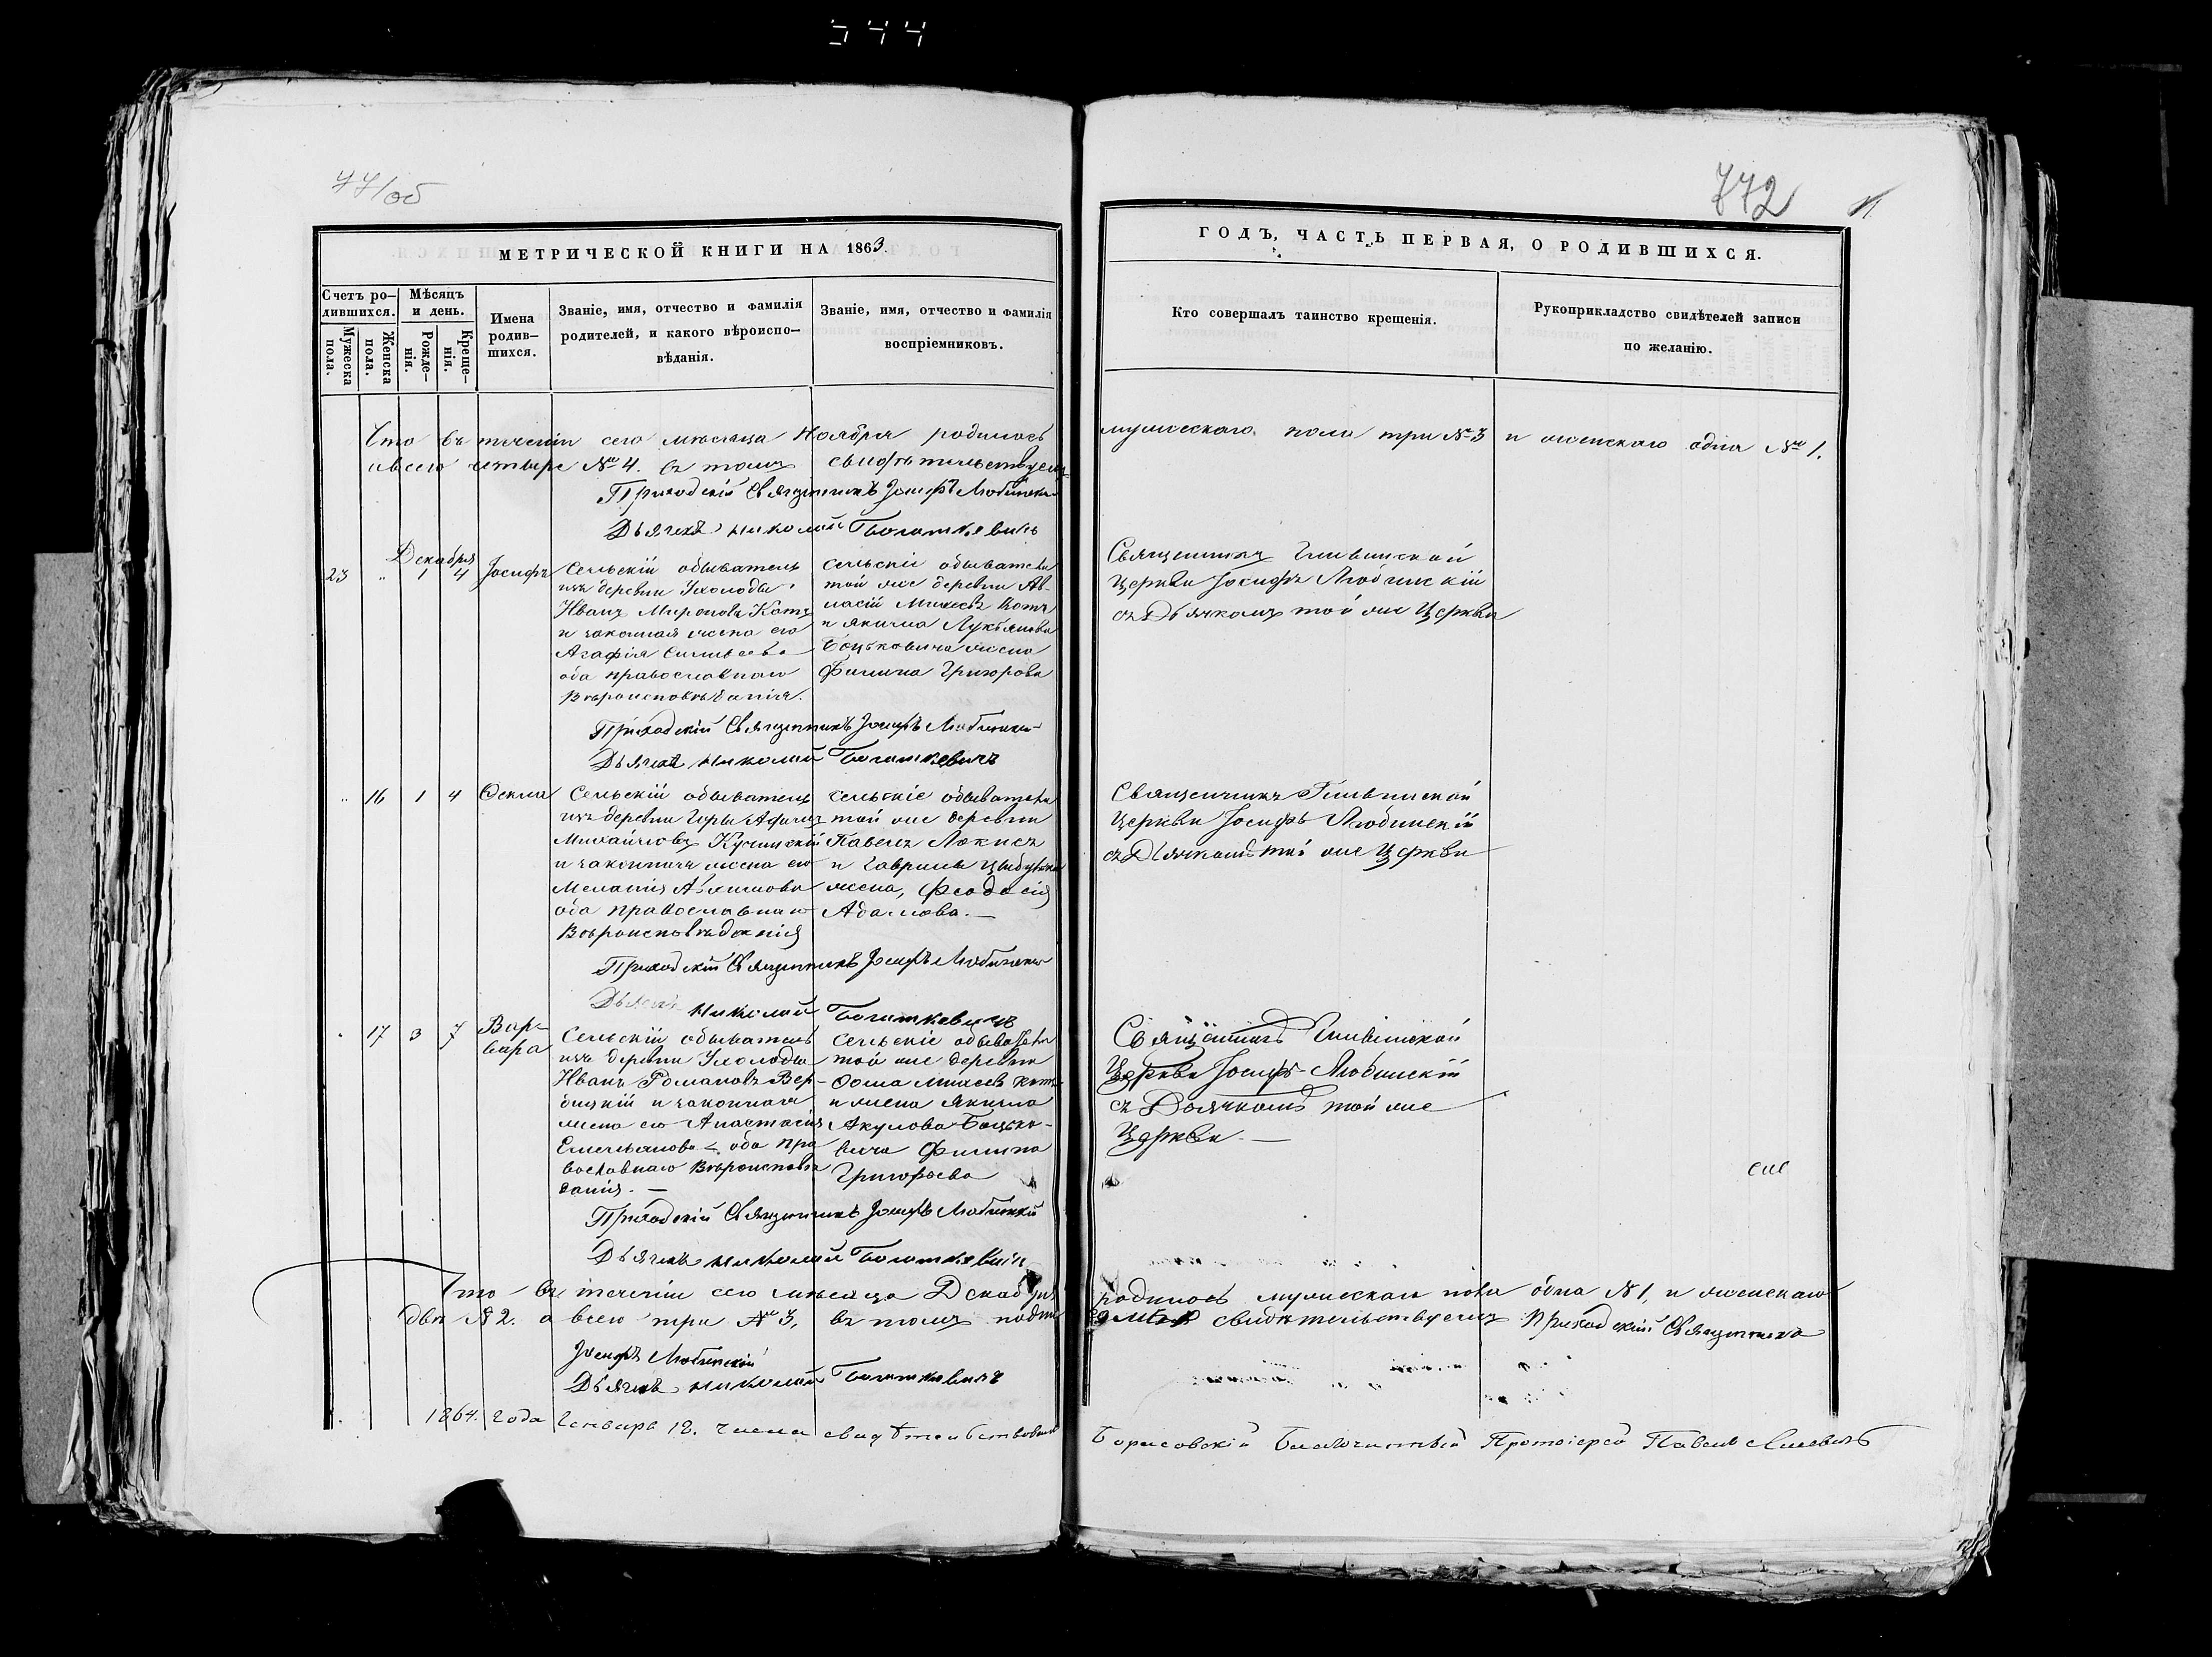 544
77/об
772
МЕТРИЧЕСКОЙ КНИГИ НА 1863.
Счетъ ро-
дившихся.
Мужеска
пола.
Женска
пола.
Мѣсяцъ
и день.
Рожде-
нія.
Креще-
нія.
Имена
родив-
шихся.
Званіе, имя, отчество и фамилія
родителей, и какого вѣроиспо-
вѣданія.
Званіе, имя, отчество и фамилія
воспріемниковъ.
ГОДЪ, ЧАСТЬ ПЕРВАЯ, О РОДИВШИХСЯ.
Кто совершалъ таинство крещенія.
Рукоприкладство свидѣтелей записи
по желанію.
Что въ теченіи сего мѣсяца Ноября родилось мужескаго пола три № 3 и женскаго одна № 1.
а всего четыре № 4. въ томъ свидѣтельствуемъ
Приходскій Священникъ Іосифъ Любинскій
Дьячекъ Николай Богаткевичъ
Декабря
23 " 1 4 Іосифъ
Сельскій обыватель
изъ деревни Ухолоды
Иванъ Мироновъ Котъ
и законная жена его
Агафія
оба православнаго
Вѣроисповѣданія.
Сельскіе обыватели
той же деревни Ав-
ласій Михеевъ Котъ
и Якима Лукьянова
Боцьковича жена
Филипа Григорова
Священникъ Гливинской
Церкви Іосифъ Любинскій
съ Дьячкомъ той же Церкви
Приходскій Священникъ Іосифъ Любинскій
Дьячекъ Николай Богаткевичъ
" 16 1 4 Фекла
Сельскій обыватель
изъ деревни Горы
Михайловъ Кучинскій
и законная жена его
Меланія
оба православнаго
Вѣроисповѣданія
Сельскіе обыватели
той же деревни
Павелъ
и Гаврилы
жена, Феодосія
Адамова. —
Священникъ Гливинской
Церкви Іосифъ Любинскій
съ Дьячкомъ той же Церкви
Приходскій Священникъ Іосифъ Любинскій
Дьячекъ Николай Богаткевичъ
" 17 3 7 Вар-
вара
Сельскій обыватель
изъ деревни Ухолоды
Иванъ Романовъ Вер-
бицкій и законная
жена его Анастасія
Емельянова оба пра
вославнаго Вѣроисповѣ
данія. —
Сельскіе обыватели
той же деревни
Ѳома Михеевъ Котъ
и жена Якима
Акулова Боцько-
вича Филипа
Григорьева
Священникъ Гливинской
Церкви Іосифъ Любинскій
съ Дьячкомъ той же
Церкви. —
Приходскій Священникъ Іосифъ Любинскій
Дьячекъ Николай Богаткевичъ
Что въ теченіи сего мѣсяца Декабря родилось мужескаго пола одна № 1, и женскаго
двѣ № 2. а всего три № 3, въ томъ свидѣтельствуемъ Приходскій Священникъ
Іосифъ Любинскій
Дьячекъ Николай Богаткевичъ
1864. года Генваря 12. числа свидѣтельствовалъ Борисовскій Благочинный Протоіерей Павелъ